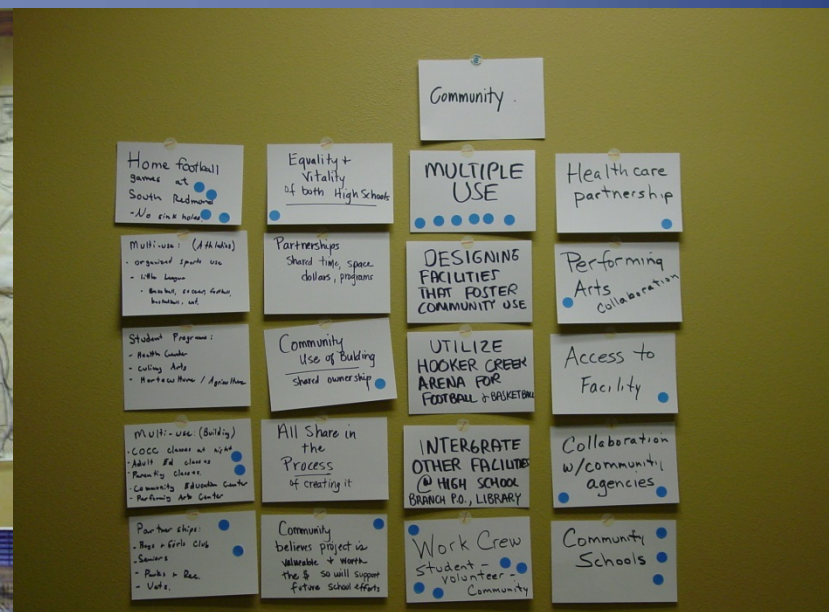 Community
Home football
games at
South Redmond
- No sink holes
Multi-use: (Athletics)
- organized sports use
- little League
- Baseball, soccer, football,
basketball, ect.
Student Programs:
- Health Center
- Culinary Arts
- Horticulture / Agriculture
Multi-use: (Building)
- COCC classes at night
- Adult Ed classes
- Parenting Classes
- Community Education Center
- Performing Arts Center
Partnerships:
- Boys + Girls Club
- Seniors
- Parks + Rec.
- Vets.
Equality +
Vitality
of both High Schools
Partnerships
Shared time, space
dollars, programs
Community
Use of Building
shared ownership
All Share in
the
Process
of creating it
Community
believes project is
valuable + worth
the $ so will support
future school efforts
MULTIPLE
USE
DESIGNING
FACILITIES
THAT FOSTER
COMMUNITY USE
UTILIZE
HOOKER CREEK
ARENA FOR
FOOTBALL & BASKETBALL
INTERGRATE
OTHER FACILITIES
@ HIGH SCHOOL
BRANCH P.O., LIBRARY
Work Crew
Student -
volunteer -
Community
Health care
partnership
Performing
Arts
collaboration
Access to
Facility
Collaboration
w/community
agencies
Community
Schools